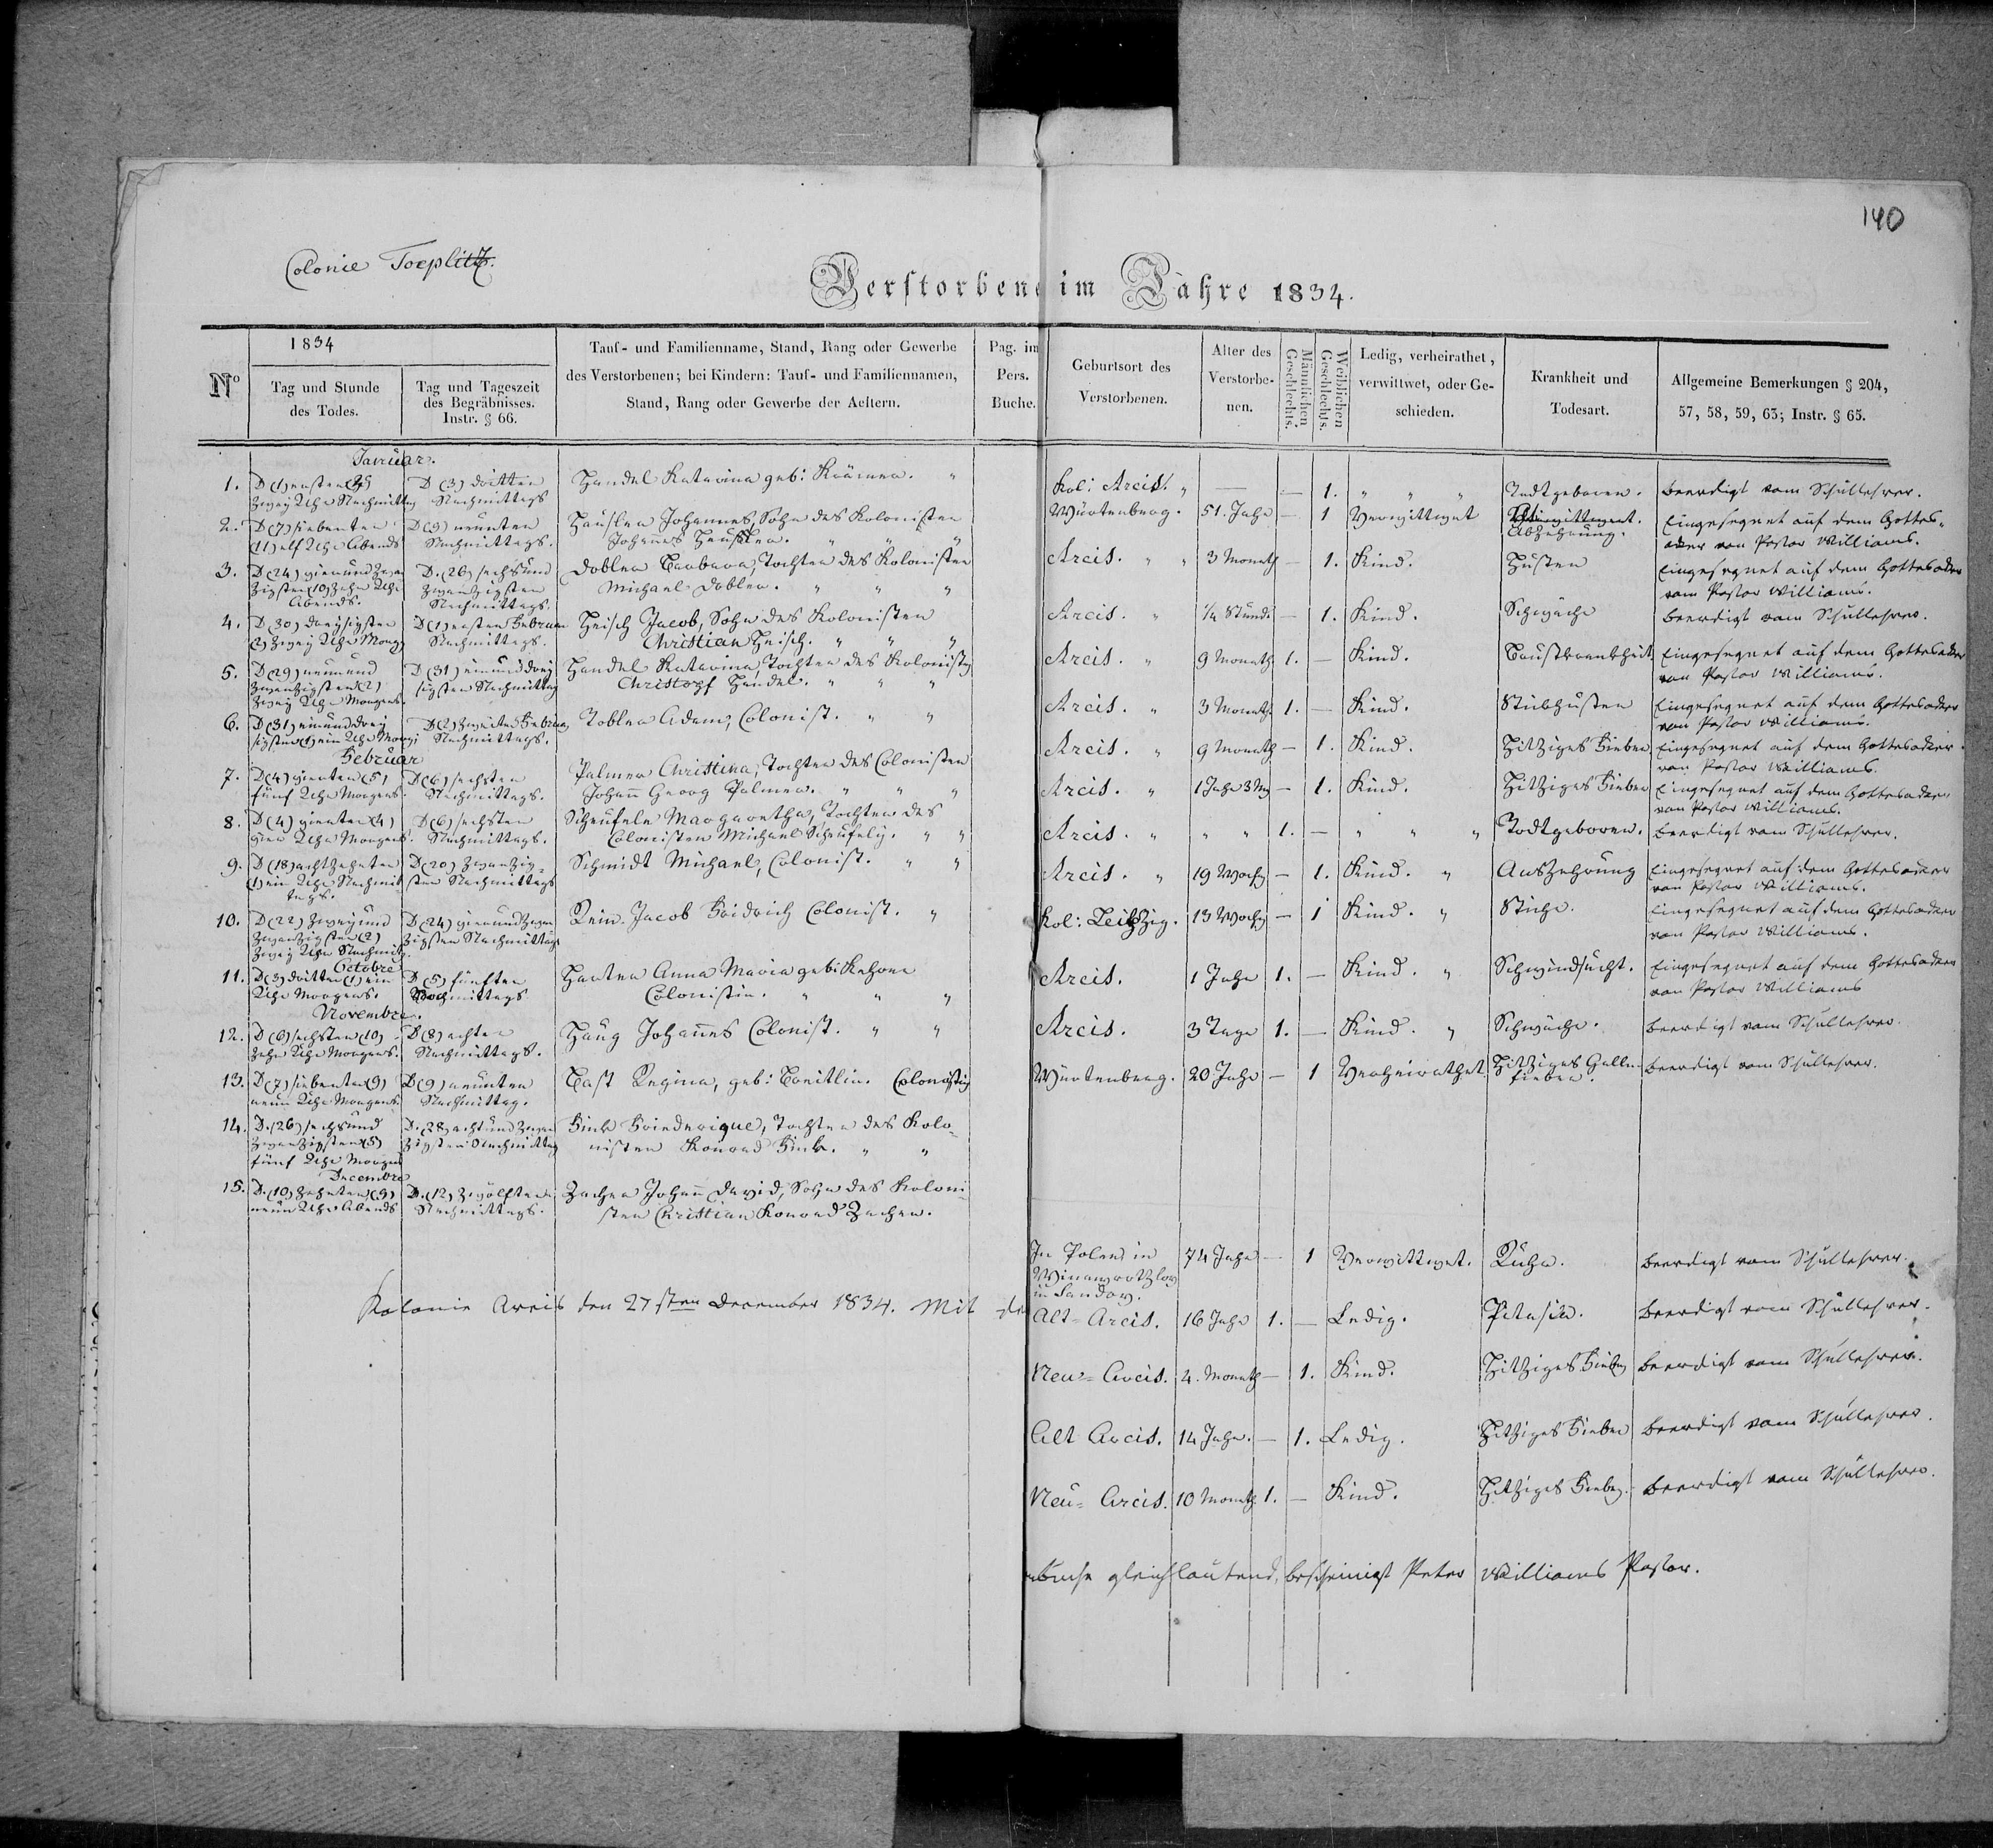 140
Colonie Toeplitz.
Verstorbene im Jahre 1834.
1834
Nº
Tag und Stunde
des Todes.
Tag und Tageszeit
des Begräbnisses.
Instr. § 66.
Tauf- und Familienname, Stand, Rang oder Gewerbe
des Verstorbenen; bei Kindern: Tauf- und Familiennamen,
Stand, Rang oder Gewerbe der Aeltern.
Pag. im
Pers.
Buche.
Geburtsort des
Verstorbenen.
Alter des
Verstorbe-
nen.
Männlichen
Geschlechts.
Weiblichen
Geschlechts.
Ledig, verheirathet,
verwittwet, oder Ge-
schieden.
Krankheit und
Todesart.
Allgemeine Bemerkungen § 204,
57, 58, 59, 63; Instr. § 65.
Januar.
1. D (1) ersten
zwey Uhr Nachmittag
D (3) dritten
Nachmittags
Handel Katarina geb: Krämer. "
2. D (7) siebenten
(11) elf Uhr Abends
D (9) neunten
Nachmittags.
Häusler Johannes, Sohn des Kolonisten
Johannes Heusler. " " "
3. D (24) vierundzwan
zigsten (10) Zehn Uhr
Abends.
D. (26) sechsund
zwanzigsten
Nachmittags.
Dobler Barbara, Tochter des Kolonisten
Michael Dobler. " " "
4. D (30) dreysigsten
(2) zwey Uhr Morg
D (1) ersten Februar
Nachmittags.
Heisch Jacob, Sohn des Kolonisten
Christian Heisch. " " "
5. D (29) neunund
zwanzigsten (2)
Zwey Uhr Morgens.
D (31) einunddrey
sigsten Nachmittag
Handel Katarina, Tochter des Kolonisten
Christopf Händel. " " "
6. D (31) einunddrey
sigsten (1) ein Uhr Morg
D (2) zweiten Februar
Nachmittags.
Tobler Adam, Colonist. " "
Februar
7. D (4) vierten (5)
fünf Uhr Morgens.
D (6) sechsten
Nachmittags.
Palmer Christina, Tochter des Colonisten
Johann Georg Palmer. " " "
8. D (4) vierten (4)
vier Uhr Morgens.
D (6) sechsten
Nachmittags.
Scheufele Margaretha, Tochter des
Colonisten Michael Scheufele. " "
9. D (18) achtzehnten
(1) ein Uhr Nachmit
tags.
D (20) zwanzig-
sten Nachmittags
Schmidt Michael, Colonist. " "
10. D (22) zweyund
zwanzigsten (2)
Zwey Uhr Nachmitg.
D (24) vierundzwan
zigsten Nachmittags
Rein Jacob Fridrich Colonist. "
Octobre
11. D (3) dritten (1) ein
Uhr Morgens.
D (5) fünften
Nachmittags
Harter Anna Maria geb:
Colonistin. " " "
Novembre.
12. D (6) sechsten (10)
zehn Uhr Morgens.
D (8) achten
Nachmittags.
Haug Johannes Colonist. " "
13. D (7) siebenten (9)
neun Uhr Morgens.
D (9) neunten
Nachmittag.
Bast Regina, geb: Breitlin. Colonistin
14. D. (26) sechsund
zwanzigsten (5)
fünf Uhr Morgens
D. (28) achtundzwan
zigsten Nachmittag
Fink Friederique, Tochter des Kolo-
nisten Konrad Fink. " "
Decembre
15. D. (10) Zehnten (9)
neun Uhr Abends
D. (12) zwölften
Nachmittags.
Zacher Johann David, Sohn des Koloni
sten Christian Konrad Zacher.
Kolonie Arcis den 27sten December 1834. Mit de
Kol: Arcis. " — — 1. " " " Todtgeboren. Beerdigt vom Schullehrer.
Würtenberg. 51. Jahr — 1 Verwittwet
Abzehrung. Eingesegnet auf dem Gottes-
acker von Pastor Williams.
Arcis. " " 3 Monath — 1. Kind. Husten Eingesegnet auf dem Gottesacker
vom Pastor Williams.
Arcis. " 1/4 Stund. — 1. Kind. Schwäche Beerdigt vom Schullehrer.
Arcis. " 9 Monath 1. — Kind. Brustkrankheit Eingesegnet auf dem Gottesacker
von Pastor Williams.
Arcis. " 3 Monath 1. — Kind. Stickhusten Eingesegnet auf dem Gottesacker
von Pastor Williams.
Arcis. " 9 Monath — 1. Kind. Hitziges Fieber Eingesegnet auf dem Gottesacker.
von Pastor Williams.
Arcis. " 1 Jahr 3 M — 1. Kind. Hitziges Fieber Eingesegnet auf dem Gottesacker
von Pastor Williams.
Arcis. " " " 1. — " " " Todtgeboren. Beerdigt vom Schullehrer.
Arcis. " 19 Woch — 1. Kind. " Auszehrung Eingesegnet auf dem Gottesacker
von Pastor Williams.
Kol: Leipzig. 13 Woch — 1 Kind. " Stiche. Eingesegnet auf dem Gottesacker
von Pastor Williams.
Arcis. 1 Jahr 1. — Kind. " Schwindsucht. Eingesegnet auf dem Gottesacker
von Pastor Williams
Arcis. 3 Tage 1. — Kind. " Schwäche. Beerdigt vom Schullehrer.
Würtenberg. 20 Jahr — 1 Verheirathet Hitziges Gallen
fieber. Beerdigt vom Schullehrer.
In Polen in 74 Jahr — 1 Verwittwet. Ruhr. Beerdigt vom Schullehrer.
Alt-Arcis. 16 Jahr 1. — Ledig. Beerdigt vom Schullehrer.
Neu-Arcis. 4. Monath — 1. Kind. Hitziges Fieber Beerdigt vom Schullehrer.
Alt Arcis. 14 Jahr. — 1. Ledig. Hitziges Fieber Beerdigt vom Schullehrer.
Neu-Arcis. 10 Monath 1. — Kind. Hitziges Fieber. Beerdigt vom Schullehrer.
gleichlautend, bescheinigt Peter Williams Pastor.